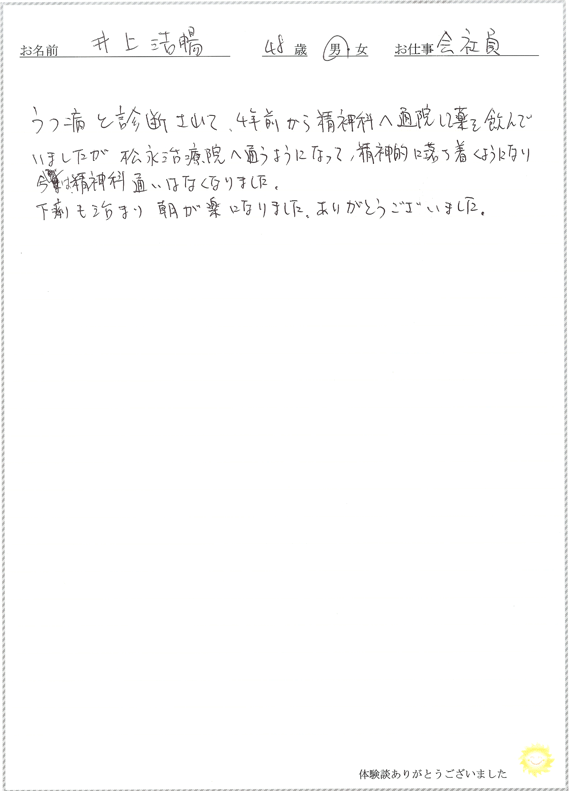 お名前 井上浩暢 48歳 男・女 お仕事 会社員
うつ病と診断されて、4年前から精神科へ通院して薬を飲んで
いましたが 松永治療院へ通うようになって、精神的に落ち着くようになり
今は精神科通いはなくなりました。
下剤も治まり 朝が楽になりました。ありがとうございました。
体験談ありがとうございました